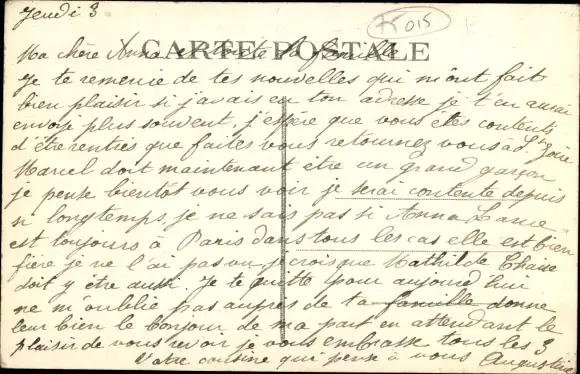 Jeudi 3
015
CARTE POSTALE
Ma chère Anna et toute la famille
Je te remercie de tes nouvelles qui m'ont fait
bien plaisir si j'avais eu ton adresse je t'en aurai
envoyé plus souvent, j'espère que vous êtes contents
d'être rentiés que faites vous retournez vous à St
Marcel doit maintenant être un grand garçon
je pense bientôt vous voir je serai contente depuis
si longtemps, je ne sais pas si Anna
est toujours à Paris dans tous les cas elle est bien
fière je ne l'ai pas vu je crois que Mathilde
doit y être aussi. Je te quitte pour aujourd'hui
ne m'oublie pas auprès de ta famille donne
leur bien le bonjour de ma part en attendant le
plaisir de vous revoir je vous embrasse tous les 3
Votre cousine qui pense à vous Augustine